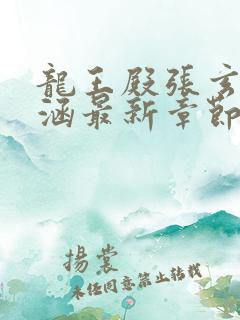 龍王殿張玄
涵最新章節
揚裳
未任同意禁止转载